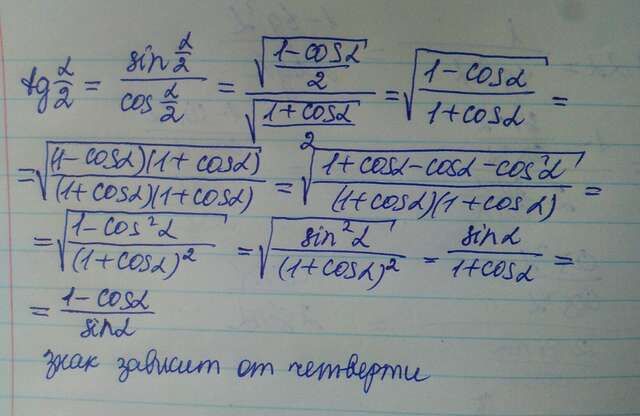 tg α/2 = sin α/2 / cos α/2 = √((1-cosα)/2) / √((1+cosα)/2) = √((1-cosα)/(1+cosα)) =
= √((1-cosα)(1+cosα)/(1+cosα)(1+cosα)) = √((1+cosα-cosα-cos²α)/(1+cosα)(1+cosα)) =
= √((1-cos²α)/(1+cosα)²) = √(sin²α/(1+cosα)²) = sinα/(1+cosα) =
= (1-cosα)/sinα
знак зависит от четверти